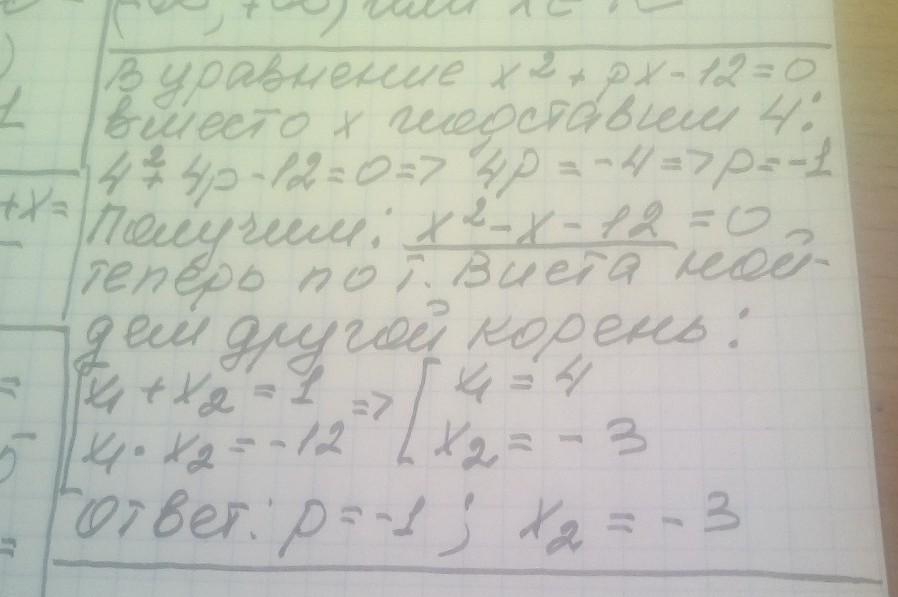 (-∞; +∞) или x ∈
В уравнение x² + px - 12 = 0
вместо x подставим 4:
4² + 4p - 12 = 0 => 4p = -4 => p = -1
+x=
Получим: x² - x - 12 = 0
теперь по т. Виета най-
дем другой корень:
x₁ + x₂ = 1 => [ x₁ = 4
x₁ · x₂ = -12 [ x₂ = -3
Ответ: p = -1; x₂ = -3